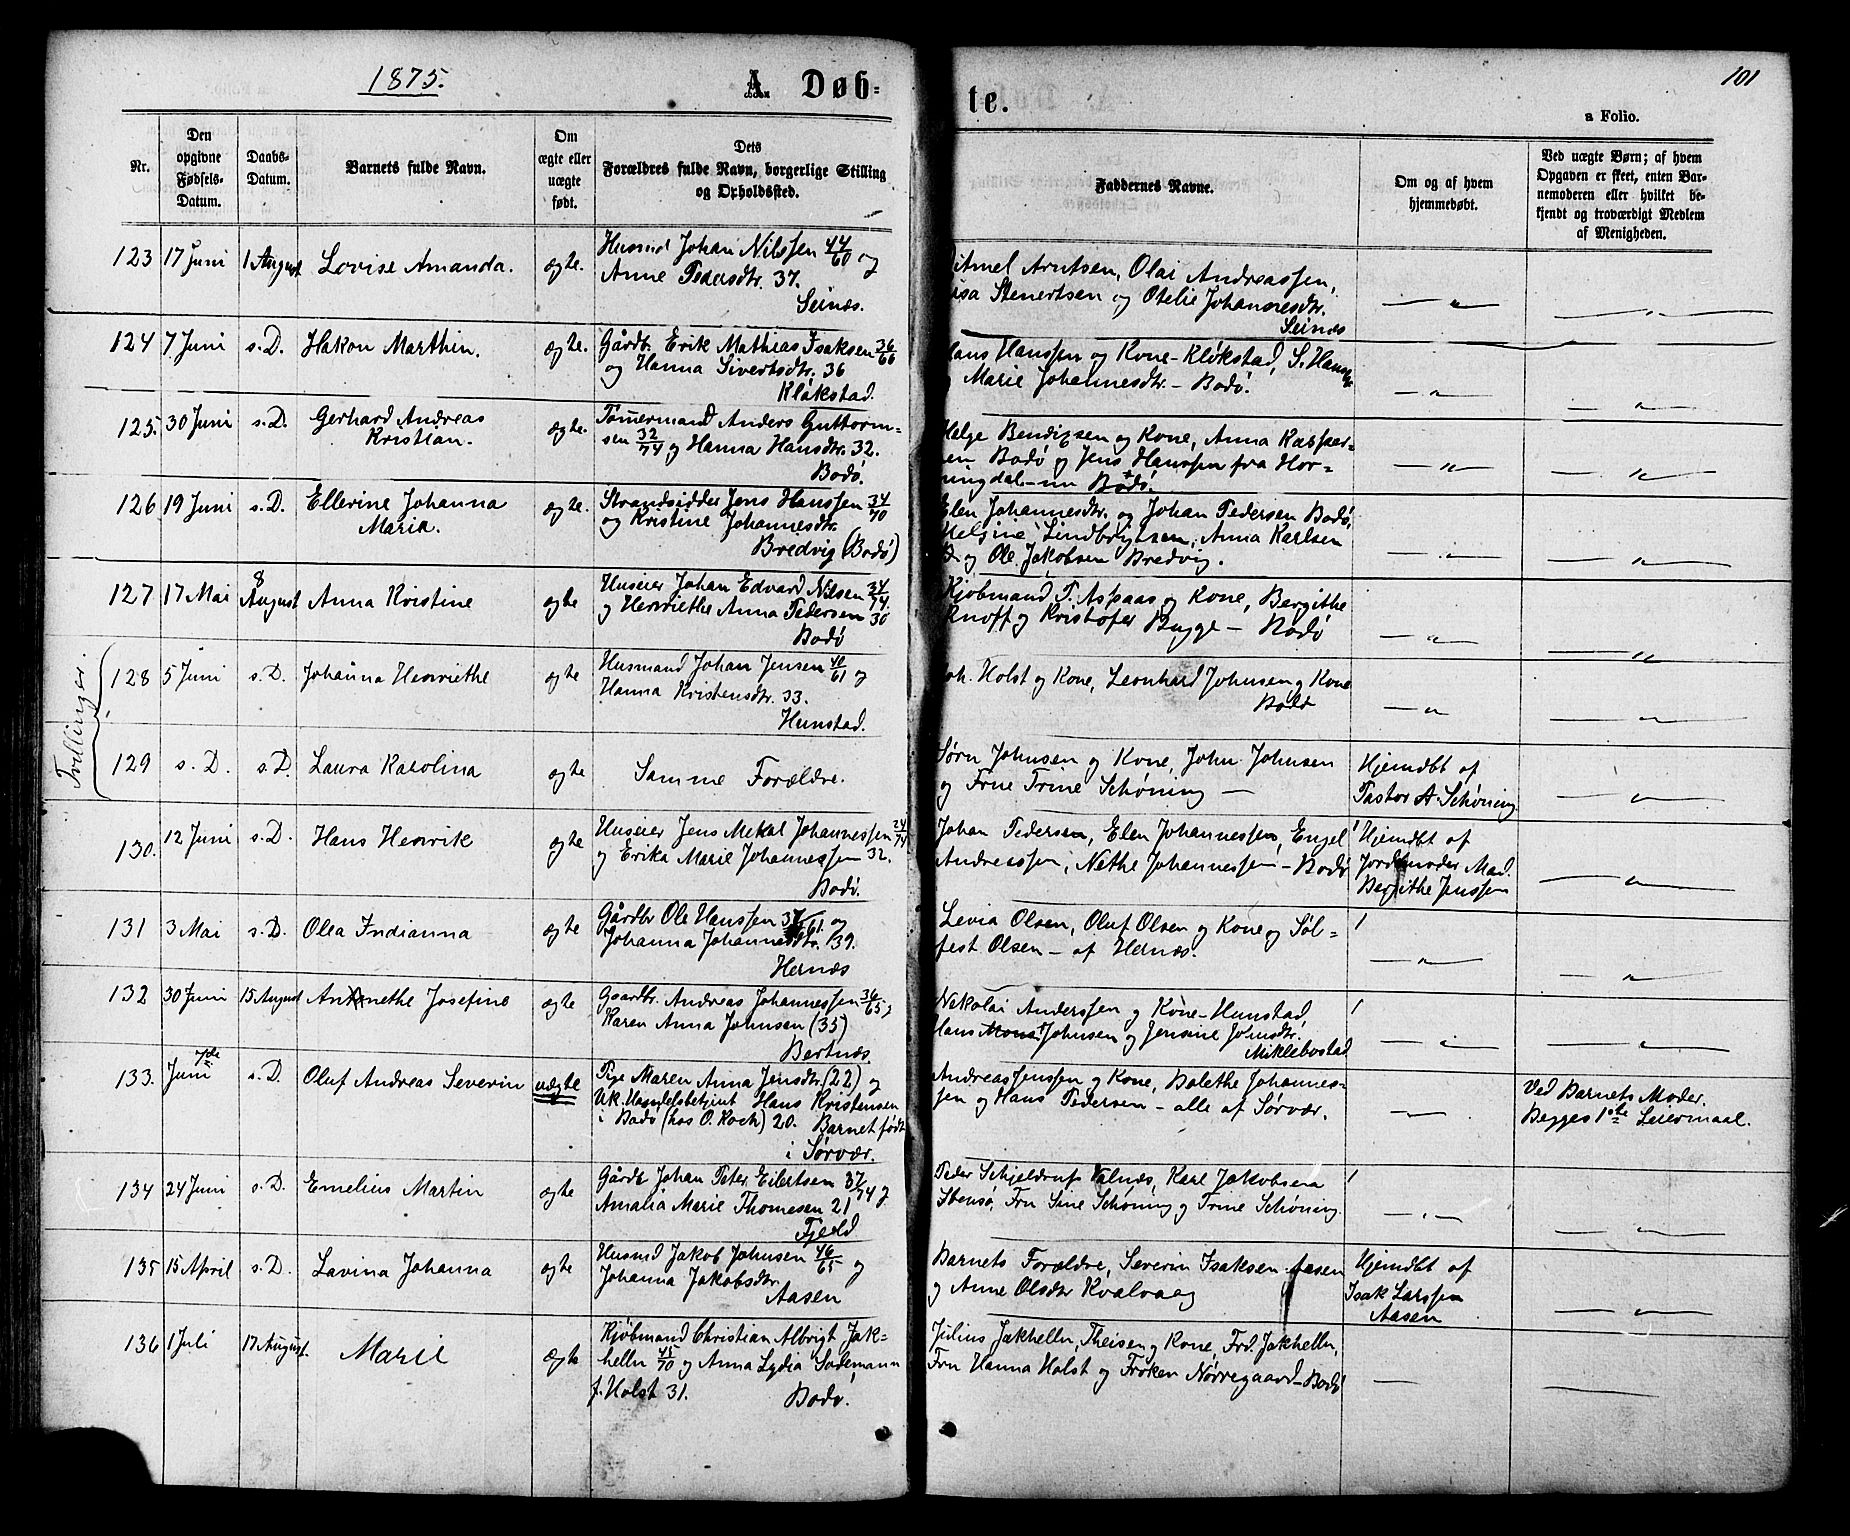 1875.
A. Døb-
te.
101
a Folio.
Nr.
Den
opgivne
Fødsels-
Datum.
Daabs-
Datum.
Barnets fulde Navn.
Om
ægte eller
uægte
født.
Dets
Forældres fulde Navn, borgerlige Stilling
og Opholdssted.
Faddernes Navne.
Om og af hvem
hjemmedøbt.
Ved uægte Børn; af hvem
Opgaven er skeet, enten Bar-
nemoderen eller hvilket be-
kjendt og troværdigt Medlem
af Menigheden.
123 17 Juni 1 August Lovise Amanda. ægte.
Husmd Johan Nilssen 44/60 og
Anne Pedersdtr. 37.
Seinæs.
Ditmel Arntsen, Olai Andreassen,
Stenertsen og Otelie Johannesdtr.
Seinæs
124 7 Juni s.D. Hakon Marthin. ægte.
Gårdbr. Erik Mathias Isaksen 36/66
og Hanna Sivertsdtr. 36
Kløkstad.
Hans Hanssen og Kone - Kløkstad, S. Hanssen
Marie Johannesdtr. - Bodø.
125. 30 Juni s.D. Gerhard Andreas
Kristian. ægte.
Tømermand Anders Guttorm-
sen 32/74 og Hanna Hansdtr. 32.
Bodø.
Helge Bendixsen og Kone, Anna Kasper-
sen Bodø og Jens Hanssen fra Hor-
ningdal - nu Bodø.
126 19 Juni s.D. Ellerine Johanna
Maria. ægte.
Strandsidder Jens Hanssen 34/70
og Kristine Johannesdtr.
Bredvig (Bodø)
Elen Johannesdtr. og Johan Pedersen Bodø,
Anna Karlsen
og Ole Jakobsen Bredvig.
127 17 Mai 8
August Anna Kristine ægte
Huseier Johan Edvard Nilsen 34/74.
og Henriethe Anna Pedersen 30
Bodø
Kjøbmand T. Aspaas og Kone, Bergithe
Knoff og Kristofer Bugge - Bodø
Tvillinger.
128 5 Juni s.D. Johanna Henriethe ægte
Husmand Johan Jensen 40/61 og
Hanna Kristensdtr. 33.
Hunstad.
Joh. Holst og Kone, Leonhard Johnsen og Kone
Bodø
129 s.D. s.D. Laura Karolina ægte
Samme Forældre.
Sørn Johnsen og Kone, John Johnsen
og Frue Trine Schøning
Hjemdbt af
Pastor A. Schøning
130. 12 Juni s.D. Hans Henrik ægte
Huseier Jens Mekal Johannessen 24/74
og Erika Marie Johannessen 32.
Bodø.
Johan Pedersen, Elen Johannessen, Engel
Andreassen, Nethe Johannessen - Bodø
Hjemdbt af
Jordemoder Mad.
Bergithe Jenssen
131 3 Mai s.D. Olea Indianna ægte
Gårdbr Ole Hanssen 37/61. og
Johanna Johannesdtr. 39.
Hernæs
Levia Olsen, Oluf Olsen og Kone og Søl-
fest Olsen - af Hernæs.
132 30 Juni 15 August Annethe Josefine ægte
Gaardbr. Andreas Johannessen 36/65 og
Karen Anna Johnsen (35)
Bertnæs.
Nekolai Anderssen og Kone - Hunstad,
Hans Johnsen og Jensine Johnsdtr.
Miklebostad.
133. 7de
Juni s.D. Oluf Andreas Severin uægte
Pige Maren Anna Jensdtr. (22) og
Uk. Handelsbetjent Hans Kristensen
i Bodø (hos O. Koch) 20. Barnet født
i Sørvær.
Andreas Jenssen og Kone, Bolethe Johannes-
sen og Hans Pedersen - alle af Sørvær.
Ved Barnets Moder.
Begges 1ste Leiermaal.
134 24 Juni s.D. Emelius Martin ægte
Gårdb Johan Peter Eilertsen 37/74 og
Amalia Marie Thomesen 21
Fjeld
Peder Schjeldrup Valnæs, Karl Jakobsen
Stensø, Fru Sine Schøning og Trine Schøning.
135 15 April s.D. Lavina Johanna ægte
Husmd Jakob Johnsen 46/65 og
Johanna Jakobsdtr.
Aasen
Barnets Forældre, Severin Isaksen Aasen
og Anne Olsdtr Kvalvaag
Hjemdbt af
Isak Larssen
Aasen
136 1 Juli 17 August. Marie ægte
Kjøbmand Christian Albrigt Jak-
helln 45/70 og Anna Lydia Sademann
f. Holst 31. Bodø.
Julius Jakhelln, Theisen og Kone, Frd. Jakhelln,
Fru Hanna Holst og Frøken Nørregaard - Bodø